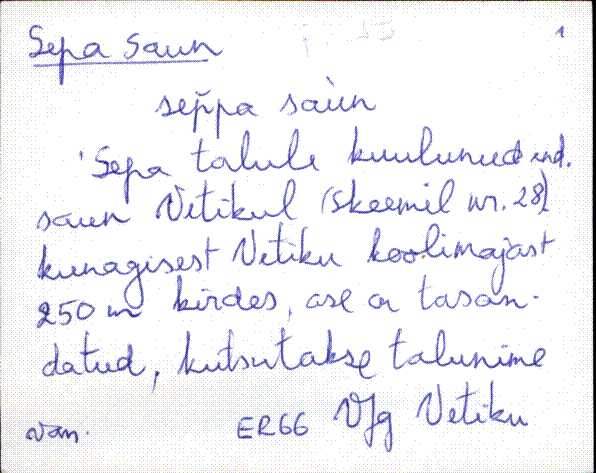 Sepa saun 1
sep̌pa saùn
Sepa talule kuulunud end.
saun Vetikul (skeemil nr. 28),
kunagisest Vetiku koolimajast
250 m kirdes, ase on tasan-
datud, kutsutakse talunime
van. ER66 VJg Vetiku